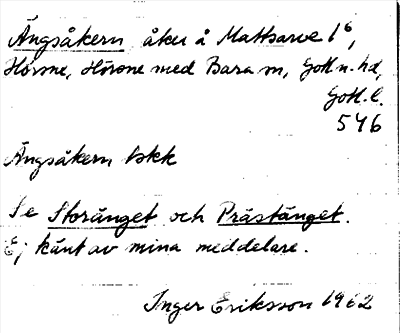 Ängsåkern åker å Mattsarve 1⁶,
Hörsne, Hörsne med Bara sn, Gotl. n. hd,
Gotl. l.
546
Ängsåkern bkk
Se Storänget och Prästänget.
Ej känt av mina meddelare.
Inger Eriksson 1962